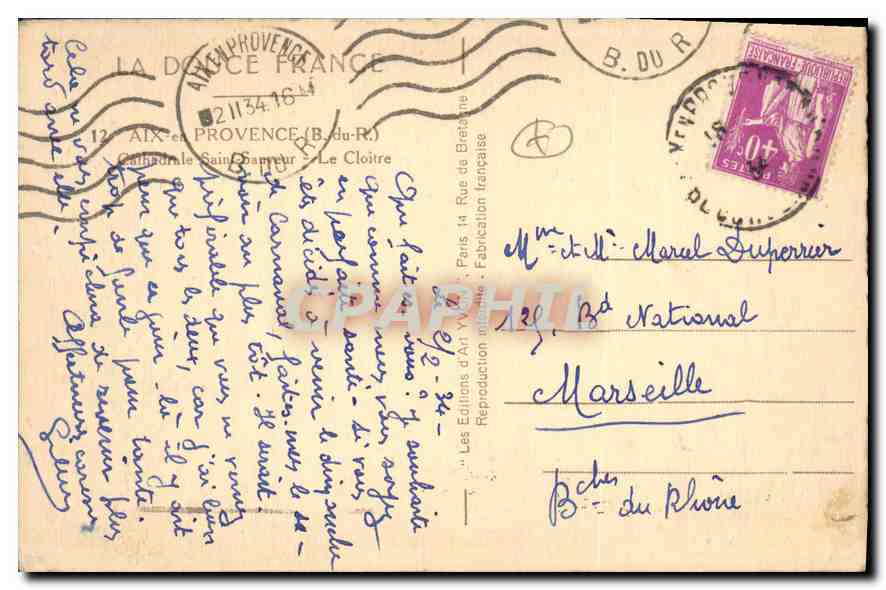 LA DOUCE FRANCE
12 - AIX-en PROVENCE (B.-du-R.)
Cathédrale Saint Sauveur - Le Cloître
AIX EN PROVENCE
12 II 34. 16 H
B. DU R
B. DU R
REPUBLIQUE FRANÇAISE
POSTES
40c
"Les Editions d'Art YVON" - Paris 14 Rue de Bretagne
Reproduction interdite - Fabrication française
CPAPHIL
le 2/2-34-
Que faites-vous? Je souhaite
que comme nous vous soyez
en parfaite santé - si vous
êtes décidés à venir le dimanche
de Carnaval, faites nous le sa-
voir au plus tôt. Il serait
préférable que vous ne veniez
que tous les deux, car j'ai bien
peur que ce jour là il y ait
trop de foule pour tante.
Cela ne vous empêchera de revenir plus
tard avec elle.
Affectueuses caresses
Mme et Mr Marcel Duperrier
125, Bd National
Marseille
Bches du Rhône